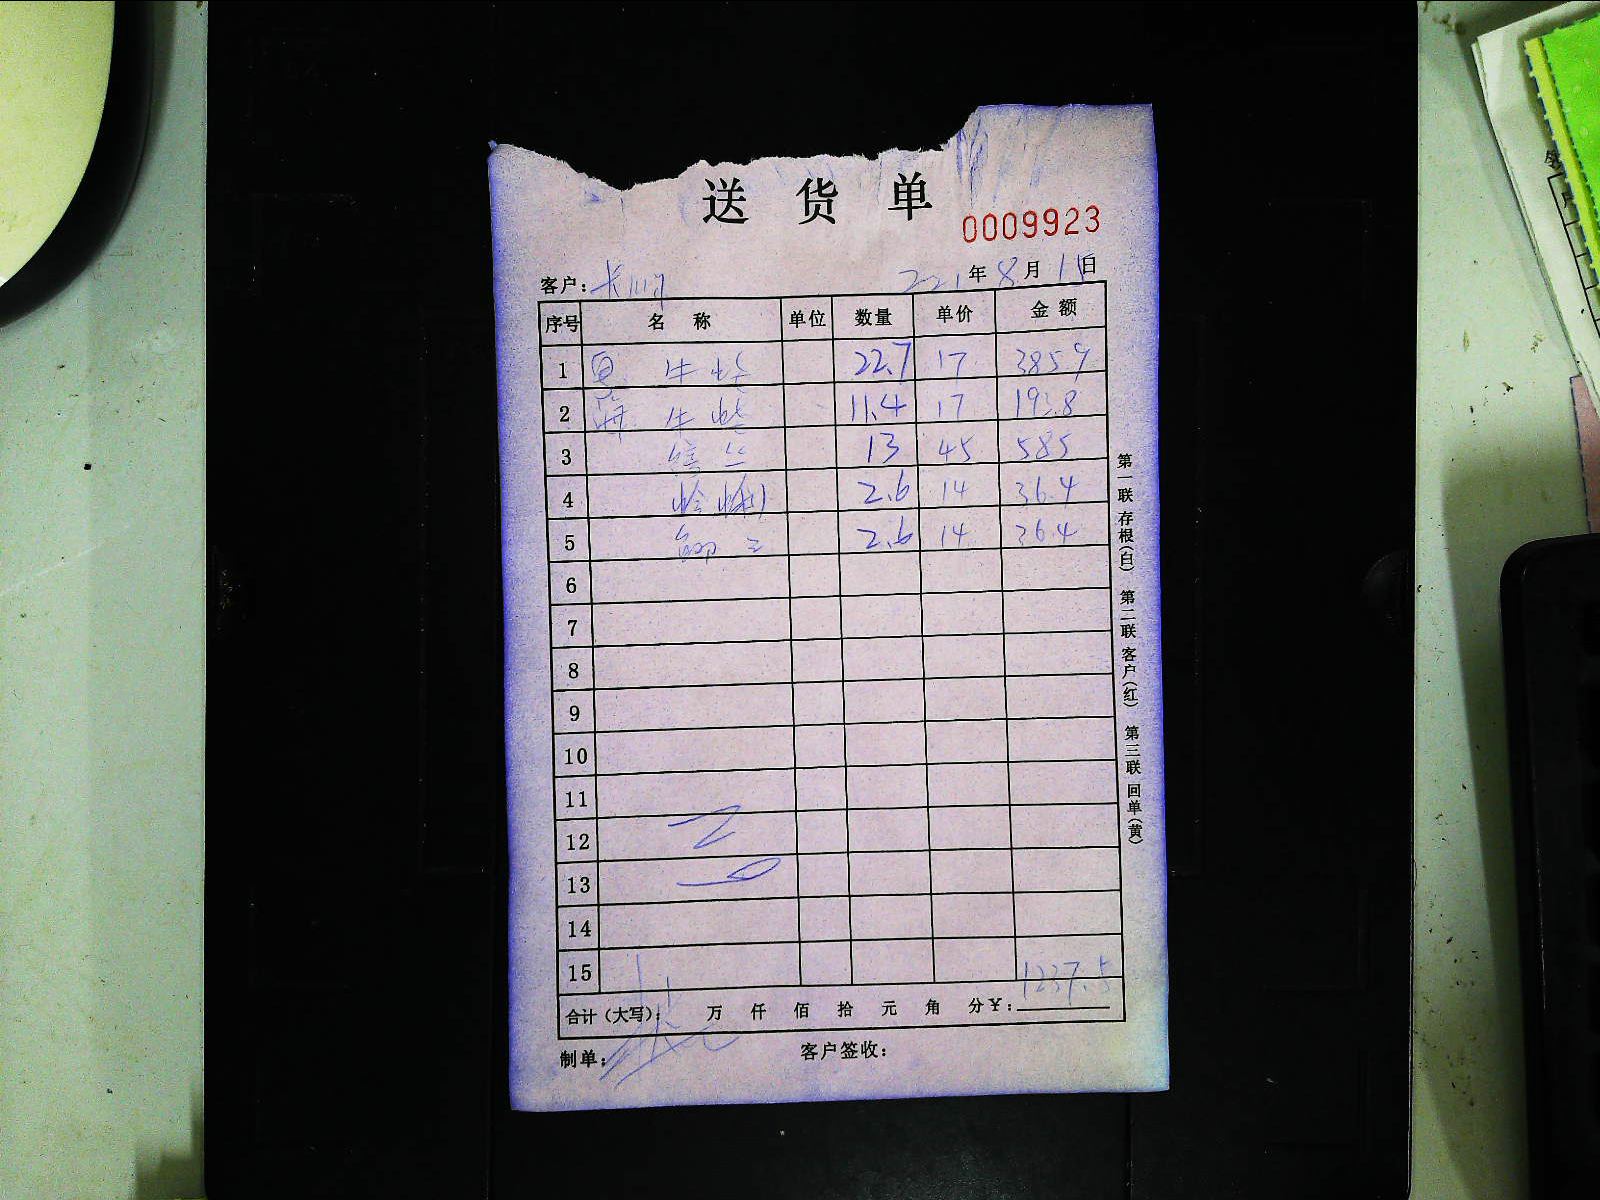 送 货 单
0009923
客户: 长顺 221 年 8 月 15 日
序号 名 称 单位 数量 单价 金 额
1 牛蛙 22.7 17 385.9
2 牛蛙 11.4 17 193.8
3 13 45 585
4 蛤蜊 2.6 14 36.4
5 2.6 14 36.4
6
7
8
9
10
11
12
13
14
15
1237.5
合计(大写): 万 仟 佰 拾 元 角 分 ¥:
制单: 客户签收:
第一联 存根(白) 第二联 客户(红) 第三联 回单(黄)